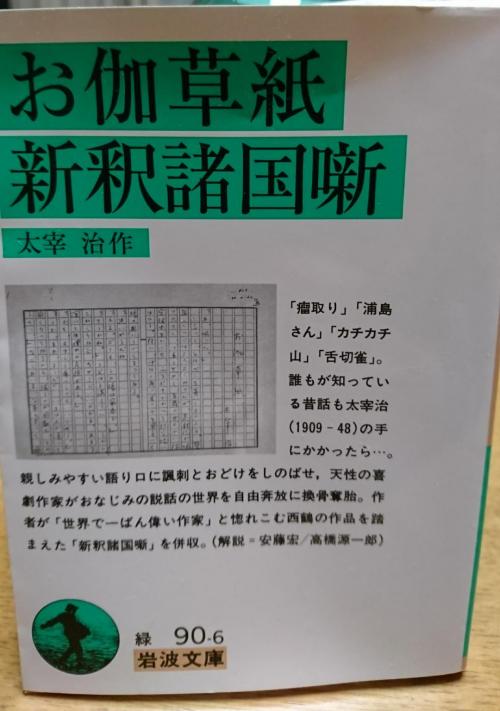 お伽草紙
新釈諸国噺
太宰 治作
「瘤取り」「浦島
さん」「カチカチ
山」「舌切雀」。
誰もが知ってい
る昔話も太宰治
(1909‐48)の手
にかかったら…。
親しみやすい語り口に諷刺とおどけをしのばせ，天性の喜
劇作家がおなじみの説話の世界を自由奔放に換骨奪胎。作
者が「世界で一ばん偉い作家」と惚れこむ西鶴の作品を踏
まえた「新釈諸国噺」を併収。(解説＝安藤宏/高橋源一郎)
緑 90-6
岩波文庫